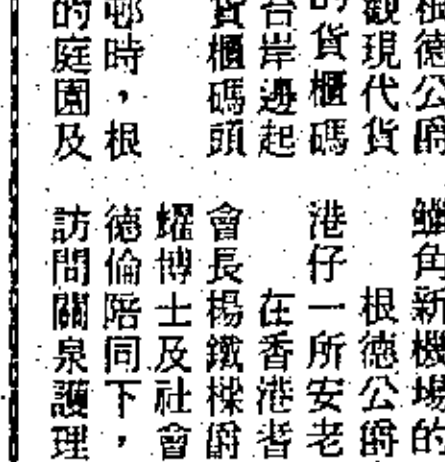 根德公爵
觀現代貨
的貨櫃碼
台岸邊起
貨櫃碼頭
邨時，根
的庭園及
鱲角新機場的
根德公爵
港仔一所安老
在香港耆
會長楊鐵樑爵
耀博士及社會
德倫陪同下，
訪問關泉護理